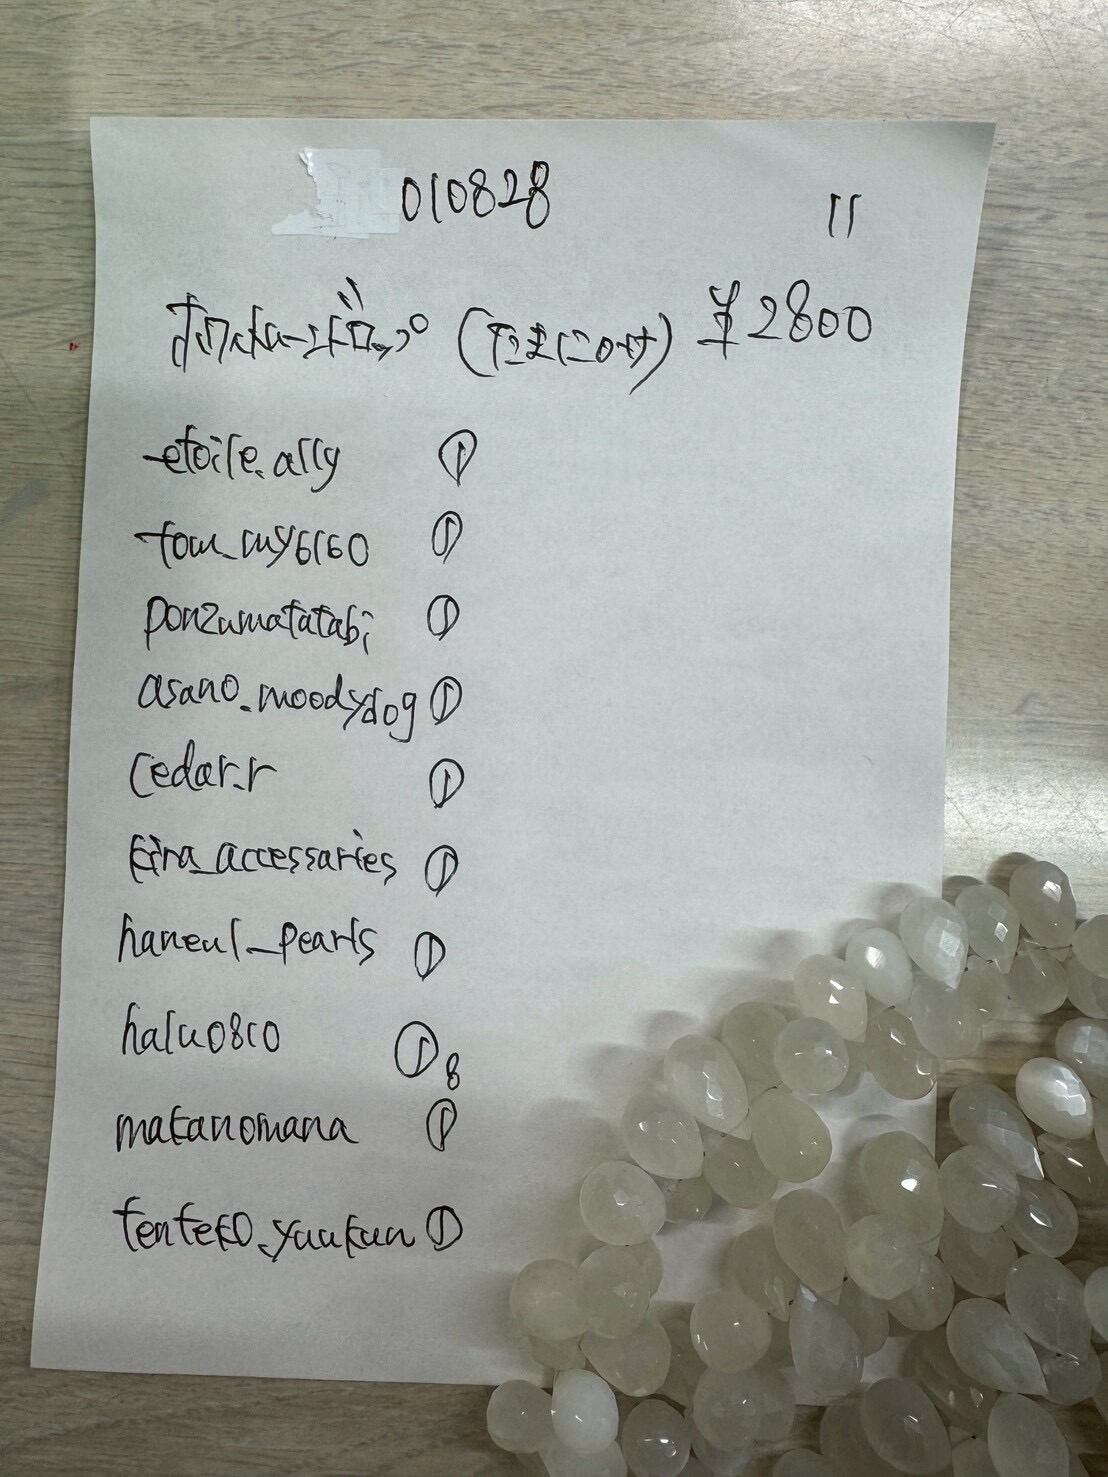 010828 11
ホワイトムーンドロップ ¥2800
etoile.ally ①
tom_my6160 ①
ponzumatatabi ①
asano.moodydog ①
cedar.r ①
kira_accessaries ①
haneul_pearls ①
halu0810 ① 8
matanomana ①
tenteko.yuukun ①